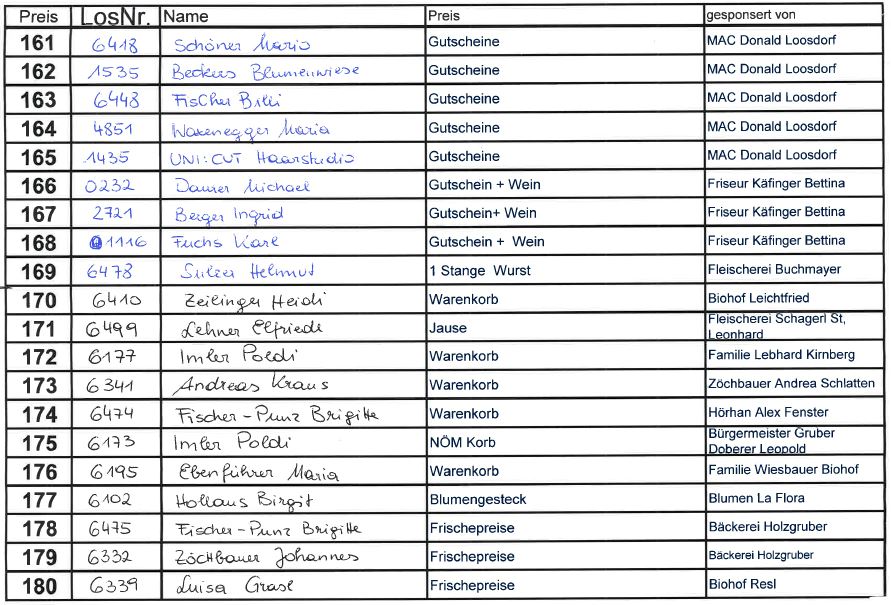 Preis LosNr. Name Preis gesponsert von
161 6418 Schöner Mario Gutscheine MAC Donald Loosdorf
162 1535 Beckers Blumenwiese Gutscheine MAC Donald Loosdorf
163 6448 Fischer Gutscheine MAC Donald Loosdorf
164 4851 Maria Gutscheine MAC Donald Loosdorf
165 1435 UNI:CUT Haarstudio Gutscheine MAC Donald Loosdorf
166 0232 Michael Gutschein + Wein Friseur Käfinger Bettina
167 2721 Berger Ingrid Gutschein+ Wein Friseur Käfinger Bettina
168 1116 Fuchs Karl Gutschein + Wein Friseur Käfinger Bettina
169 6478 Sulzer Helmut 1 Stange Wurst Fleischerei Buchmayer
170 6410 Zeilinger Heidi Warenkorb Biohof Leichtfried
171 6499 Lehner Elfriede Jause Fleischerei Schagerl St,
Leonhard
172 6177 Imler Poldi Warenkorb Familie Lebhard Kirnberg
173 6341 Andreas Kraus Warenkorb Zöchbauer Andrea Schlatten
174 6474 Fischer-Punz Brigitte Warenkorb Hörhan Alex Fenster
175 6173 Imler Poldi NÖM Korb Bürgermeister Gruber
Doberer Leopold
176 6195 Ebenführer Maria Warenkorb Familie Wiesbauer Biohof
177 6102 Hollaus Birgit Blumengesteck Blumen La Flora
178 6475 Fischer-Punz Brigitte Frischepreise Bäckerei Holzgruber
179 6332 Zöchbauer Johannes Frischepreise Bäckerei Holzgruber
180 6339 Luisa Grasl Frischepreise Biohof Resl